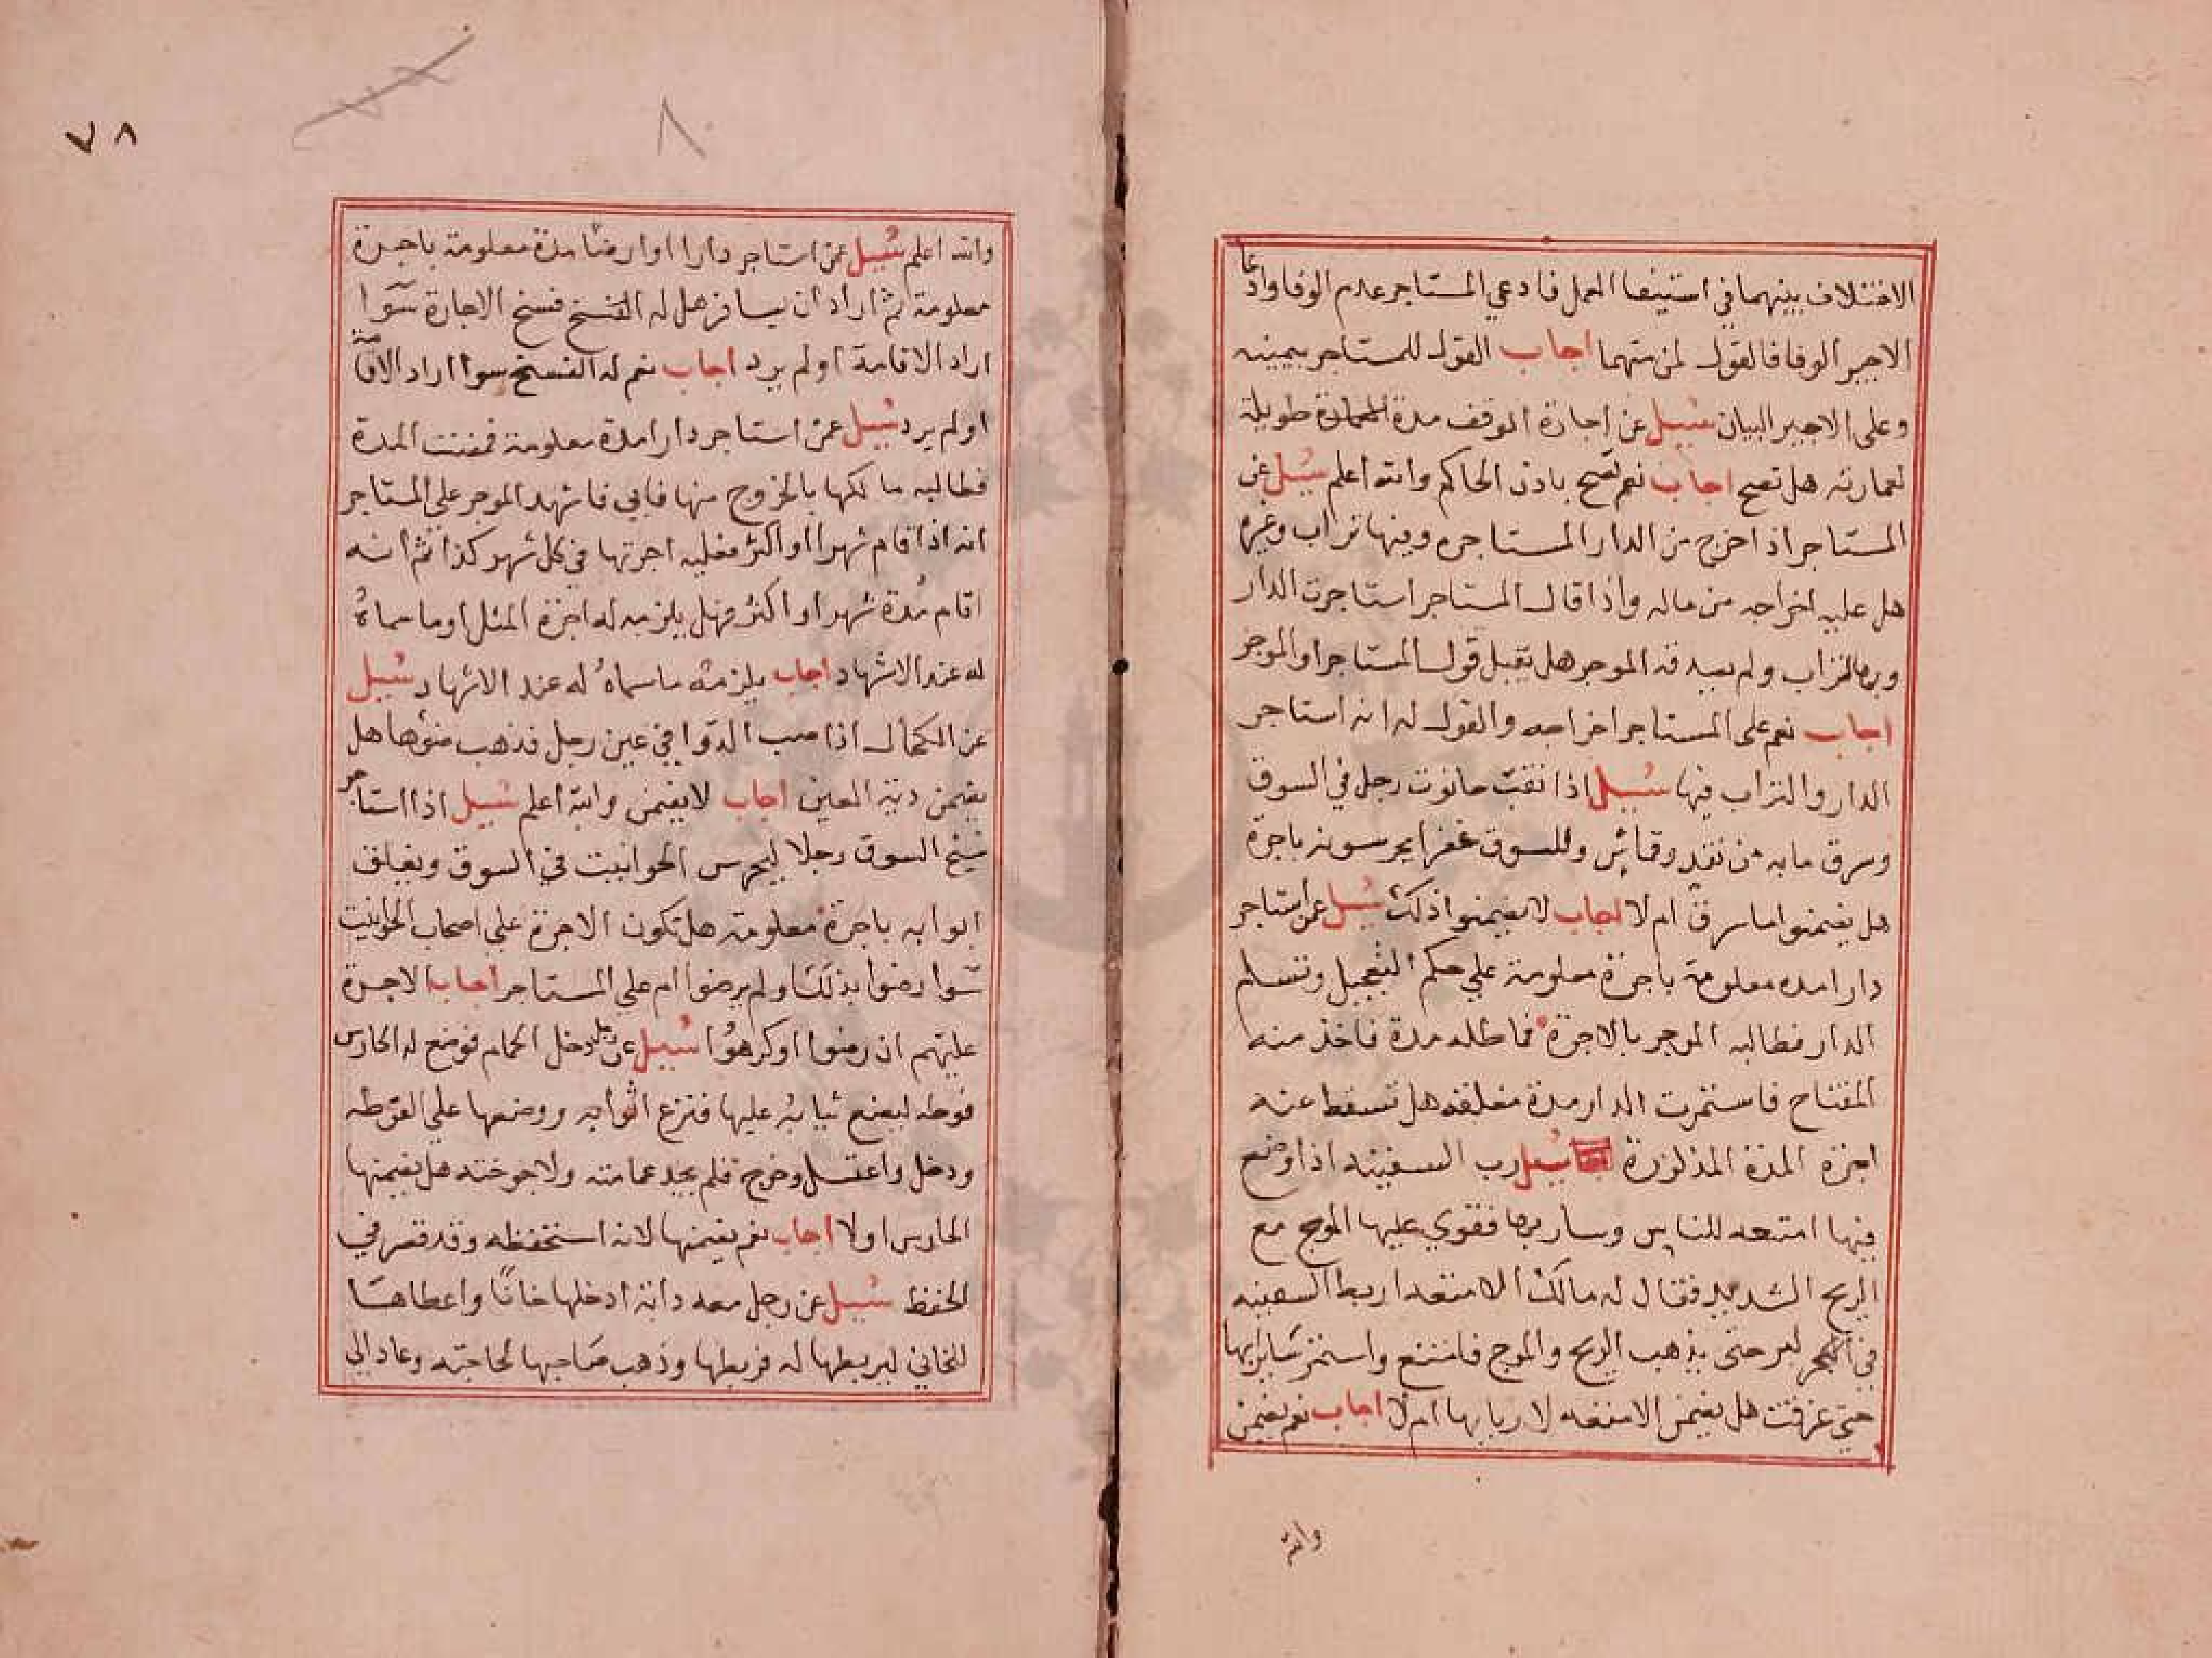 الاختلاف بينهما في استيفا العمل فادعي المستاجر عدم الوفا وادعا
الاجير الوفا فالقول لمن منهما اجاب القول للمستاجر بيمينه
وعلى الاجير البيان سيل عن اجارة الوقف مدة طويلة
لعمارته هل تصح اجاب نعم تصح باذن الحاكم والله اعلم سيل عن
المستاجر اذا خرج من الدار المستاجره وفيها تراب وغيره
هل عليه اخراجه من ماله واذا قال المستاجر استاجرت الدار
وبها التراب ولم يصدقه الموجر هل يقبل قول المستاجر او الموجر
اجاب نعم على المستاجر اخراجه والقول له انه استاجر
الدار والتراب فيها سيل اذا نقبت حانوت رجل في السوق
وسرق مابه من نقد وقماش وللسوق غفرا يحرسونه باجرة
هل يضمنوا ما سرق ام لا اجاب لا يضمنوا ذلك سيل عمن استاجر
دارا مده معلومة باجرة معلومة علي حكم التعجيل وتسلم
الدار فطالبه الموجر بالاجرة فماطله مدة فاخذ منه
المفتاح فاستمرت الدار مدة مغلقه هل تسقط عنه
اجرة المدة المذكورة سيل رب السفينه اذا وضع
فيها امتعه للناس وسار بها فقوي عليها الموج مع
الريح الشديد فقال له مالك الامتعه اربط السفينه
في البر حتى يذهب الريح والموج فامتنع واستمر ساير بها
حتي غرقت هل يضمن الامتعه لاربابها ام لا اجاب نعم يضمن
والله
٧٨
٨
والله اعلم سيل عمن استاجر دارا او ارضا مدة معلومة باجرة
معلومة ثم اراد ان يسافر هل له الفسخ فسخ الاجارة سوا
اراد الاقامة او لم يرد اجاب نعم له الفسخ سوا اراد الاقامة
او لم يرد سيل عمن استاجر دارا مدة معلومة فمضت المدة
فطالبه مالكها بالخروج منها فابي فاشهد الموجر على المستاجر
انه اذا اقام شهرا او اكثر فعليه اجرتها في كل شهر كذا ثم انه
اقام مدة شهر او اكثر فهل يلزمه له اجرة المثل او ما سماه
له عند الاشهاد اجاب يلزمه ما سماه له عند الاشهاد سيل
عن الكحال اذا صب الدوا في عين رجل فذهب ضوها هل
يضمن دية العين اجاب لا يضمن والله اعلم سيل اذا استاجر
شيخ السوق رجلا ليحرس الحوانيت في السوق ويغلق
ابوابه باجرة معلومة هل تكون الاجرة علي اصحاب الحوانيت
سوا رضوا بذلك او لم يرضوا ام علي المستاجر اجاب الاجرة
عليهم ان رضوا او كرهوا سيل عن رجل دخل الحمام فوضع له الحارس
فوطه ليضع ثيابه عليها فنزع اثوابه ووضعها علي الفوطه
ودخل واغتسل وخرج فلم يجد عمامته ولا جوخته هل يضمنها
الحارس او لا اجاب نعم يضمنها لانه استحفظه وقد قصر في
الحفظ سيل عن رجل معه دابة ادخلها خانا واعطاها
للخاني ليربطها له فربطها وذهب صاحبها لحاجته وعاد الي